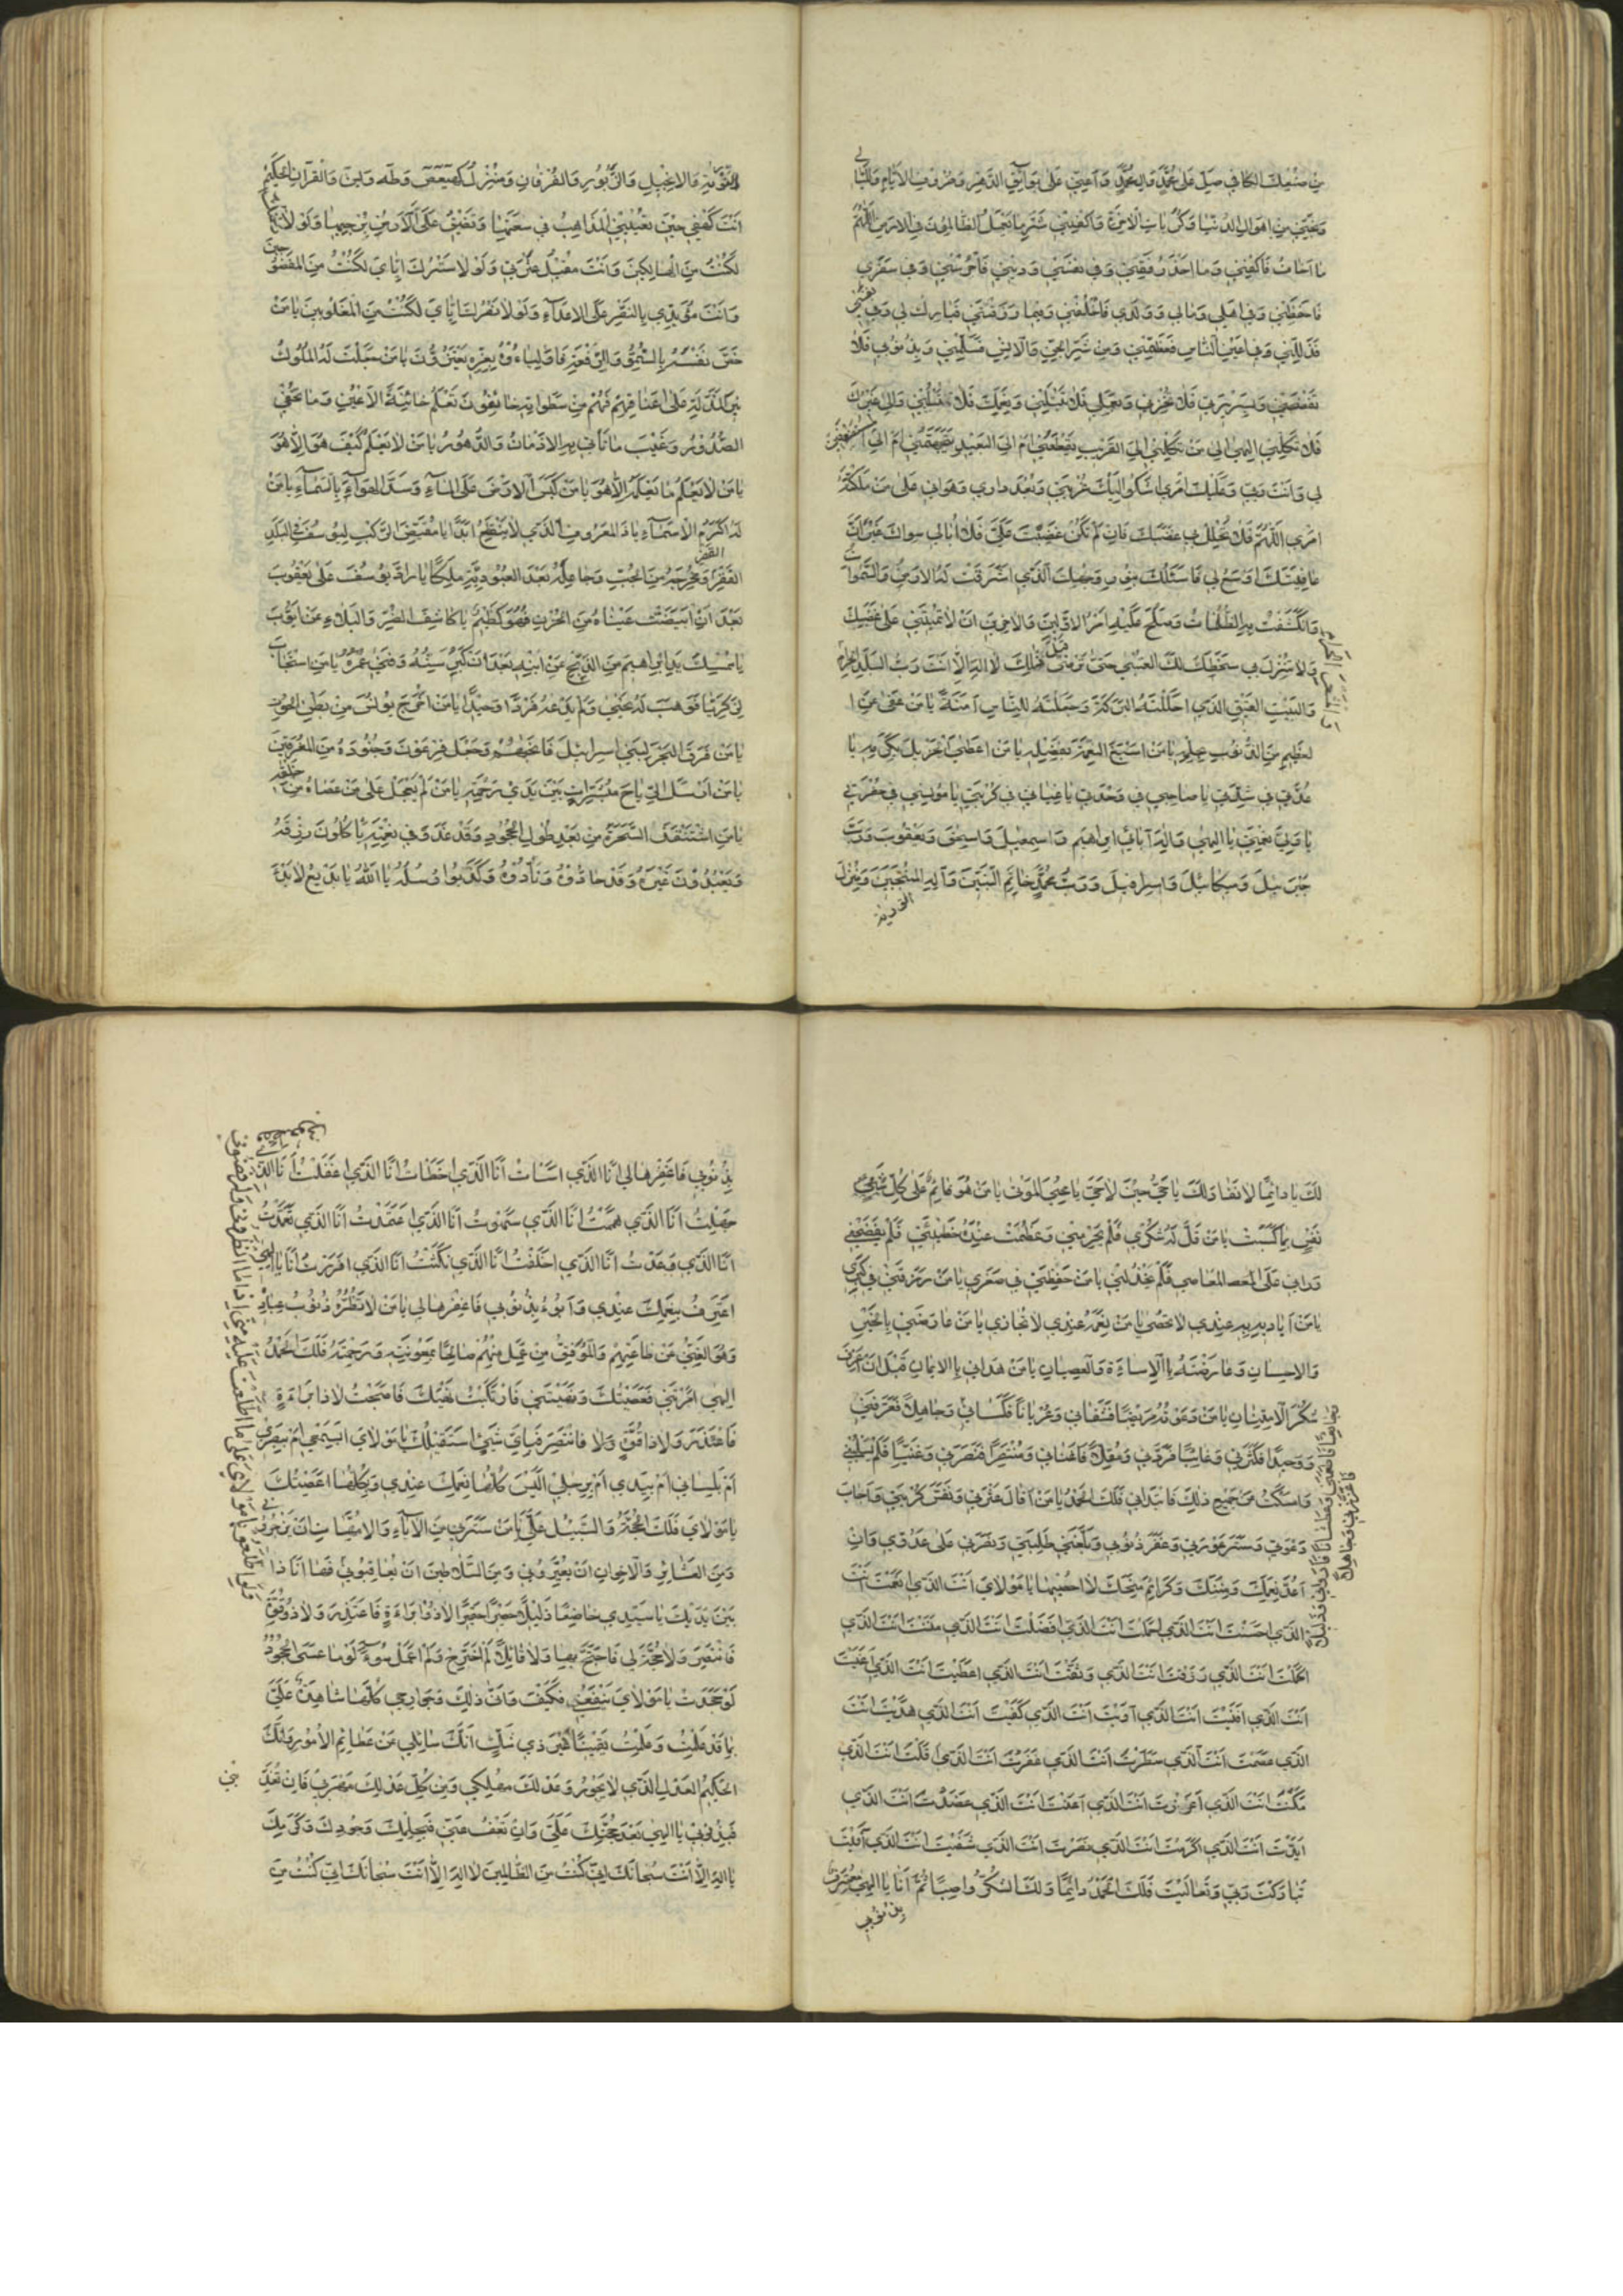 من صنعك الكافي صل على محمد وال محمد واعني على بوايق الدهر وصروف الايام والليا
لي
ونجني من اهوال الدنيا وكربات الاخرة واكفني شر ما يعمل الظالمون في الارض اللهم
ما اخاف فاكفني وما احذر فقني وفي نفسي وديني فاحرسني وفي سفري
فاحفظني وفي اهلي ومالي وولدي فاخلفني وفيما رزقتني فبارك لي وفي نفسي
فذللني وفي اعين الناس فعظمني ومن شر الجن والانس فسلمني وبذنوبي فلا
تفضحني وبسريرتي فلا تخزني وبعملي فلا تبتلني ونعمك فلا تسلبني والى غيرك
فلا تكلني الهي الى من تكلني الى القريب يقطعني ام الى البعيد يتجهمني ام الى المستضعفين
لي وانت ربي ومليك امري اشكو اليك غربتي وبعد داري وهواني على من ملكته
امري اللهم فلا تحلل بي غضبك فان لم تكن غضبت علي فلا ابالي سواك غير ان
عافيتك اوسع لي فاسئلك بنور وجهك الذي اشرقت له الارض والسموات
وانكشفت به الظلمات وصلح عليه امر الاولين والاخرين ان لا تميتني على غضبك
ولا تنزل بي سخطك لك العتبى حتى ترضى قبل ذلك لا اله الا انت رب البلد الحرام
والمشعر الحرام
والبيت العتيق الذي احللته البركة وجعلته للناس امنة يا من عفى عن ا
لعظيم من الذنوب بحلمه يا من اسبغ النعمة بفضله يا من اعطى الجزيل بكرمه يا
عدتي في شدتي يا صاحبي في وحدتي يا غياثي في كربتي يا مونسي في حفرتي
يا وليي نعمتي يا الهي واله آبائي ابراهيم واسمعيل واسحق ويعقوب ورب
جبرئيل وميكائيل واسرافيل ورب محمد خاتم النبيين وآله المنتجبين ومنزل
التورية
التورية والانجيل والزبور والفرقان ومنزل كهيعص وطه ويس والقرآن الحكيم
انت كهفي حين تعييني المذاهب في سعتها وتضيق علي الارض برحبها ولولا رحمتك
لكنت من الهالكين وانت مقيل عثرتي ولولا سترك اياي لكنت من المفضوحين
وانت مؤيدي بالنصر على الاعداء ولولا نصرك اياي لكنت من المغلوبين يا من
خص نفسه بالسمو والرفعة فاولياءه بعزه يعتزون يا من جعلت له الملوك
نير المذلة على اعناقهم فهم من سطواته خائفون تعلم خائنة الاعين وما تخفي
الصدور وغيب ما تأتي به الازمان والدهور يا من لا يعلم كيف هو الا هو
يا من لا يعلم ما يعلمه الا هو يا من كبس الارض على الماء وسد الهواء بالسماء يا من
له اكرم الاسماء يا ذا المعروف الذي لا ينقطع ابدا يا مقيض الركب ليوسف في البلد
القفر ومخرجه من الجب وجاعله بعد العبودية ملكا يا راد يوسف على يعقوب
بعد ان ابيضت عيناه من الحزن فهو كظيم يا كاشف الضر والبلاء عن ايوب
يا ممسك يد ابراهيم من الذبح عن ابنه بعد ان كبر سنه وفني عمره يا من استجاب
لزكريا فوهب له يحيى ولم يدعه فردا وحيدا يا من اخرج يونس من بطن الحوت
يا من فرق البحر لبني اسرائيل فانجيهم وجعل فرعون وجنوده من المغرقين
يا من ارسل الرياح مبشرات بين يدي رحمته يا من لم يعجل على من عصاه من خلقه
يا من استنقذ السحرة من بعد طول الجحود وقد غدوا في نعمته يأكلون رزقه
ويعبدون غيره وقد حادوه ونادوه وكذبوا رسله يا الله يا بديع لا بدء
لك يا دائما لا نفاد لك يا حي حين لا حي يا محيي الموتى يا من هو قائم على كل
نفس بما كسبت يا من قل له شكري فلم يحرمني وعظمت عنده خطيئتي فلم يفضحني
وراني على المعاصي فلم يخذلني يا من حفظني في صغري يا من رزقني في كبري
يا من اياديه عندي لا تحصى يا من نعمه عندي لا تجازى يا من عارضني بالخير
والاحسان وعارضته بالاساءة والعصيان يا من هداني بالايمان قبل ان اعرف
شكر الامتنان يا من دعوته مريضا فشفاني وعريانا فكساني وجائعا فاشبعني وعطشانا فارواني وذليلا فاعزني وجاهلا فعرفني
ووحيدا فكثرني وغائبا فردني ومقلا فاغناني ومنتصرا فنصرني وغنيا فلم يسلبني
وامسكت عن جميع ذلك فابتداني فلك الحمد يا من اقال عثرتي ونفس كربتي واجاب
دعوتي وستر عورتي وغفر ذنوبي وبلغني طلبتي ونصرني على عدوي وان
اعد نعمك ومننك وكرائم منحك لا احصيها يا مولاي انت الذي انعمت انت
الذي احسنت انت الذي اجملت انت الذي افضلت انت الذي مننت انت الذي
اكملت انت الذي رزقت انت الذي وفقت انت الذي اعطيت انت الذي اغنيت
انت الذي اقنيت انت الذي آويت انت الذي كفيت انت الذي هديت انت
الذي عصمت انت الذي سترت انت الذي غفرت انت الذي اقلت انت الذي
مكنت انت الذي اعززت انت الذي اعنت انت الذي عضدت انت الذي
ايدت انت الذي اكرمت انت الذي نصرت انت الذي شفيت انت الذي عافيت
تباركت ربي وتعاليت فلك الحمد دائما ولك الشكر واصبا ثم انا يا الهي المعترف
بذنوبي
بذنوبي فاغفرها لي انا الذي اسات انا الذي اخطات انا الذي اغفلت انا الذي
جهلت انا الذي هممت انا الذي سهوت انا الذي اعتمدت انا الذي تعمدت
انا الذي وعدت انا الذي اخلفت انا الذي نكثت انا الذي اقررت انا يا الهي
اعترف بنعمك عندي وابوء بذنوبي فاغفرها لي يا من لا تضره ذنوب عباده
وهو الغني عن طاعتهم والموفق من عمل منهم صالحا بمعونته ورحمته فلك الحمد
الهي امرتني فعصيتك ونهيتني فارتكبت نهيك فاصبحت لا ذا براءة
فاعتذر ولا ذا قوة فانتصر فباي شيء استقبلك يا مولاي ابسمعي ام ببصري
ام بلساني ام بيدي ام برجلي اليس كلها نعمك عندي وبكلها عصيتك
يا مولاي فلك الحجة والسبيل علي يا من سترني من الآباء والامهات ان يزجروني
ومن العشائر والاخوان ان يعيروني ومن السلاطين ان يعاقبوني
ولو اطلعوا يا مولاي على ما اطلعت عليه مني اذا ما انظروني ولرفضوني وقطعوني
فها انا ذا
بين يديك يا سيدي خاضعا ذليلا حصيرا حقيرا لا ذو براءة فاعتذر ولا ذو قوة
فانتصر ولا حجة لي فاحتج بها ولا قائل لم اجترح ولم اعمل سوء وما عسى الجحود
لو جحدت يا مولاي ينفعني فكيف وانى ذلك وجوارحي كلها شاهدة علي
بما قد عملت وعلمت يقينا غير ذي شك انك سائلي عن عظائم الامور وانك
الحكيم العدل الذي لا يجور وعدلك مهلكي ومن كل عدلك مهربي فان تعذبني
فبذنوبي يا الهي بعد حجتك علي وان تعف عني فبحلمك وجودك وكرمك
لا اله الا انت سبحانك اني كنت من الظالمين لا اله الا انت سبحانك اني كنت من